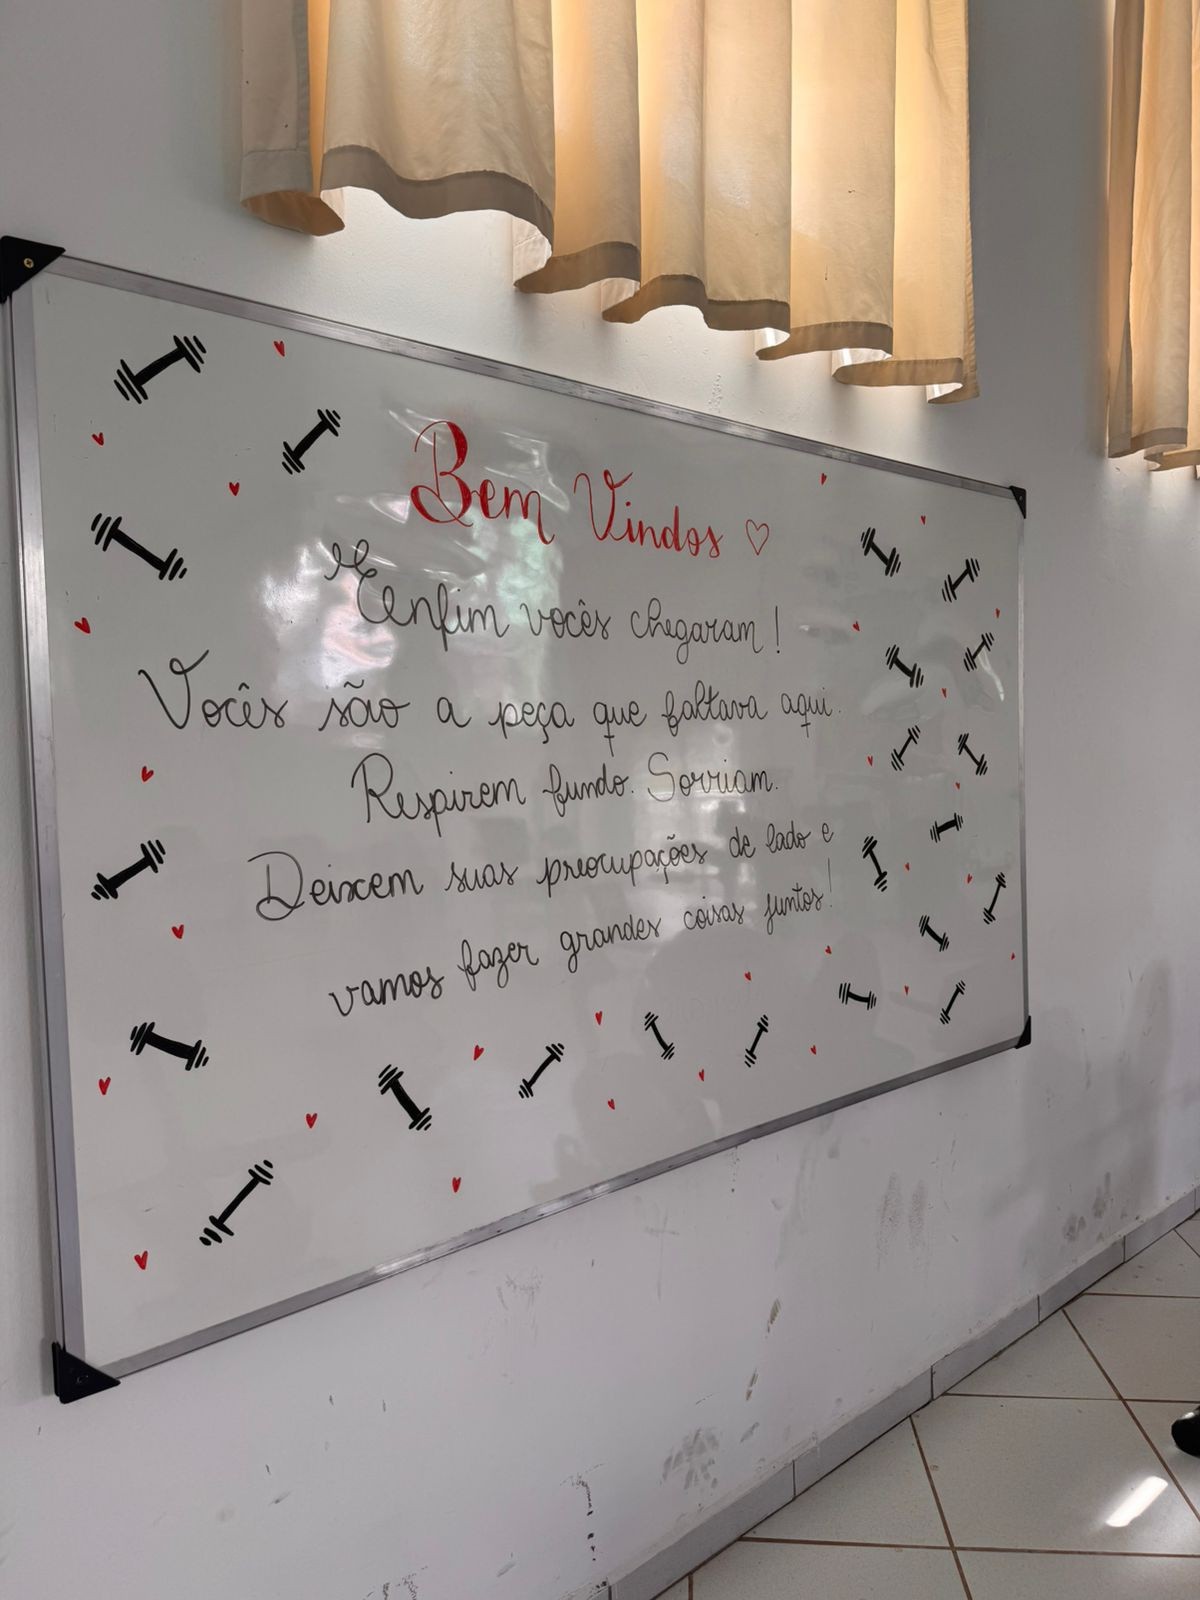 Bem Vindos ♡
Enfim vocês chegaram!
Vocês são a peça que faltava aqui.
Respirem fundo. Sorriam.
Deixem suas preocupações de lado e
vamos fazer grandes coisas juntos!